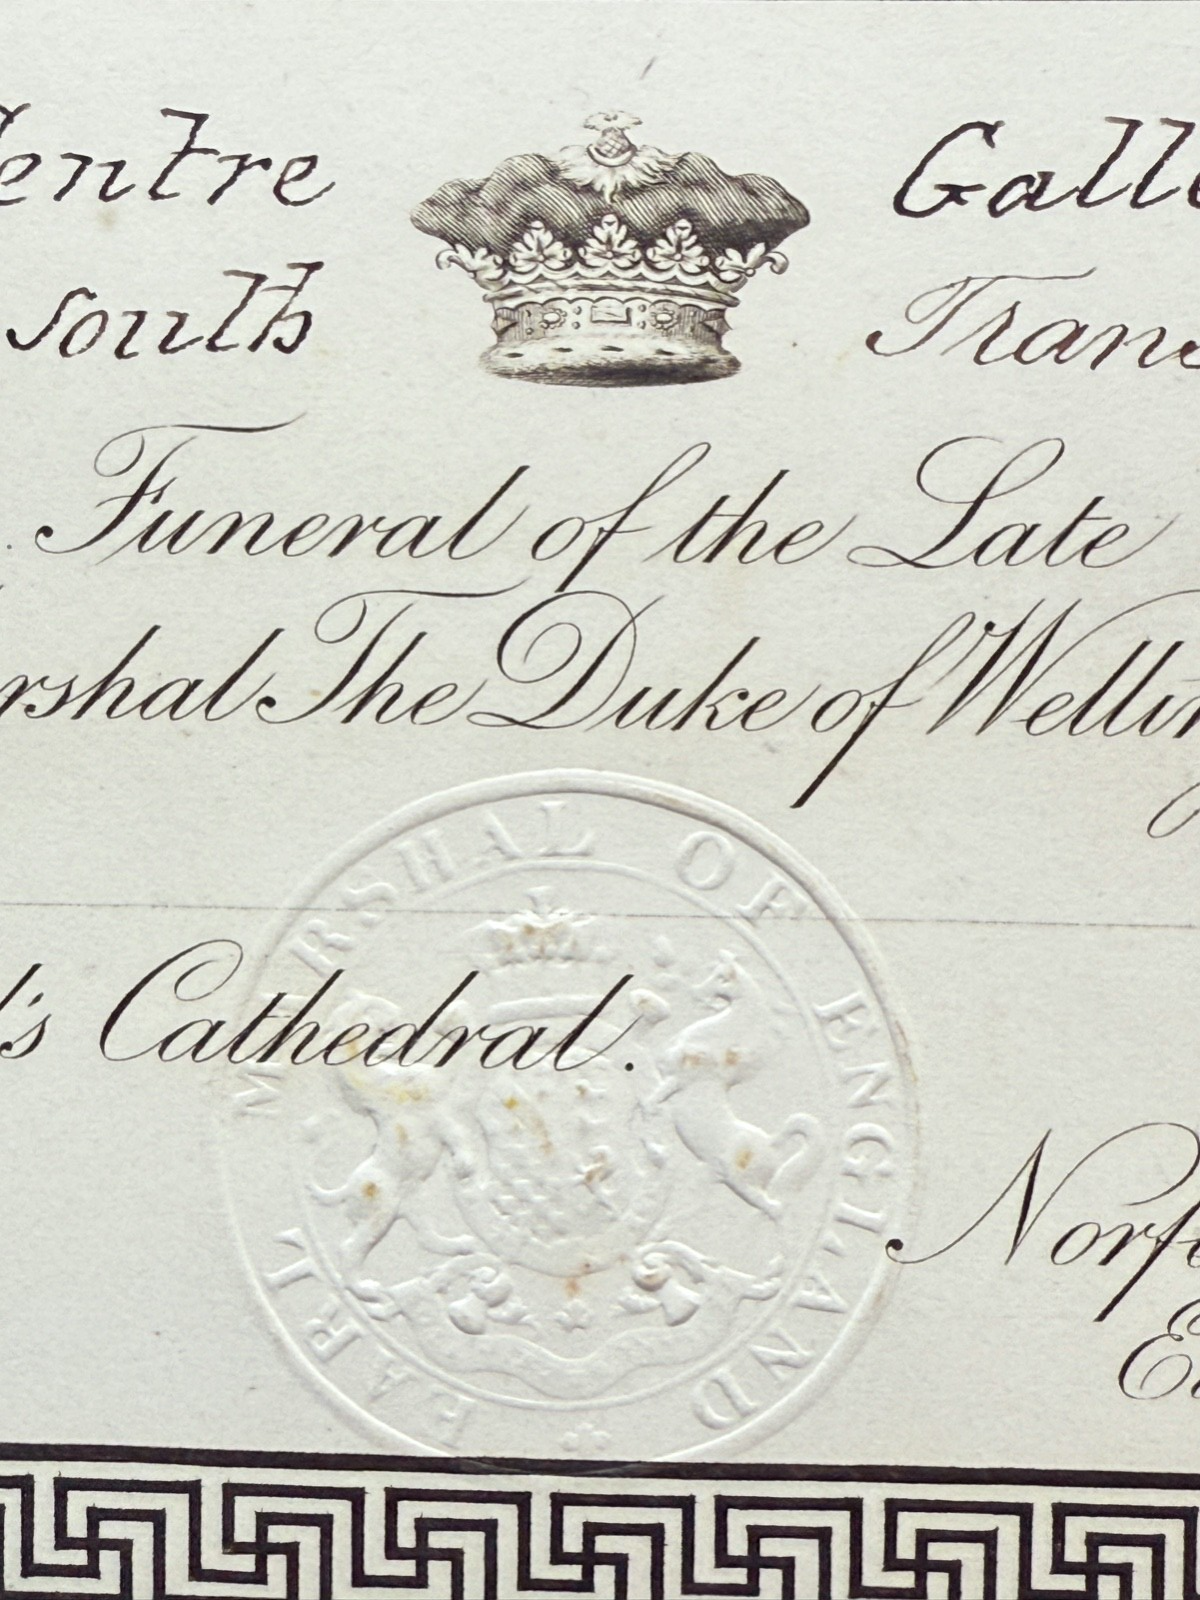 entre Gall
south Trans
Funeral of the Late
rshal The Duke of Welling
l's Cathedral.
EARL MARSHAL OF ENGLAND
Norfo
E